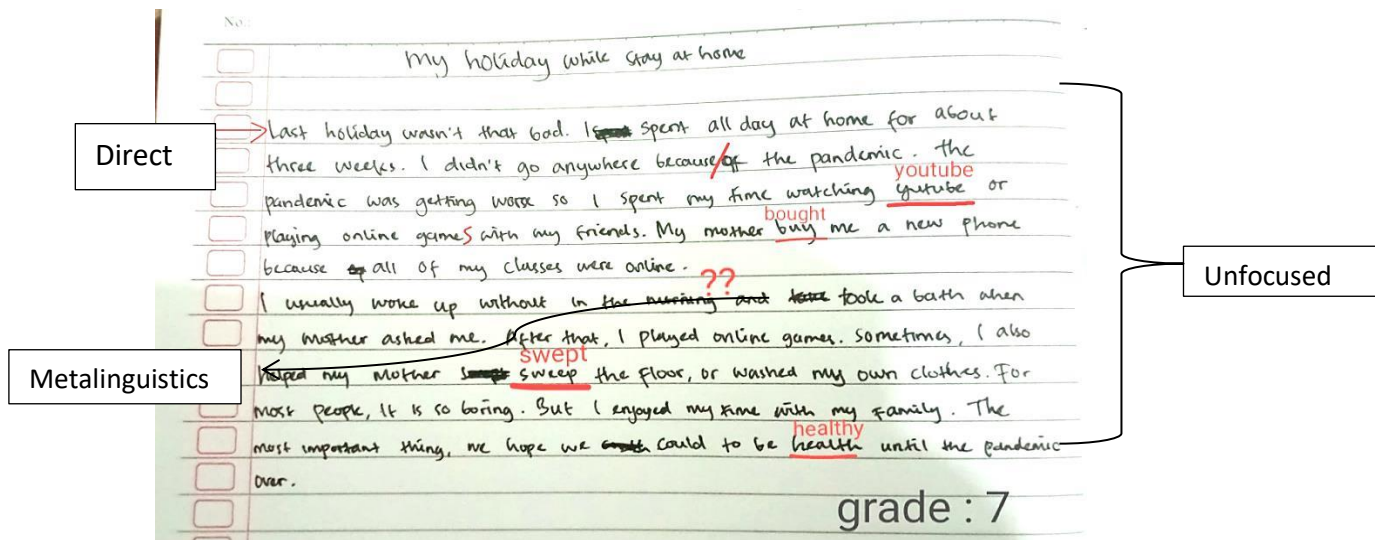 No.:
My holiday while stay at home
Last holiday wasn't that bad. I spent all day at home for about
Direct
three weeks. I didn't go anywhere because of the pandemic. The
youtube
pandemic was getting worse so I spent my time watching yutube or
bought
playing online games with my friends. My mother buy me a new phone
because all of my classes were online.
Unfocused
??
I usually woke up without in the morning and took a bath when
my mother asked me. After that, I played online games. Sometimes, I also
swept
Metalinguistics
helped my mother sweep the floor, or washed my own clothes. For
most people, It is so boring. But I enjoyed my time with my family. The
healthy
most important thing, we hope we could to be health until the pandemic
over.
grade : 7